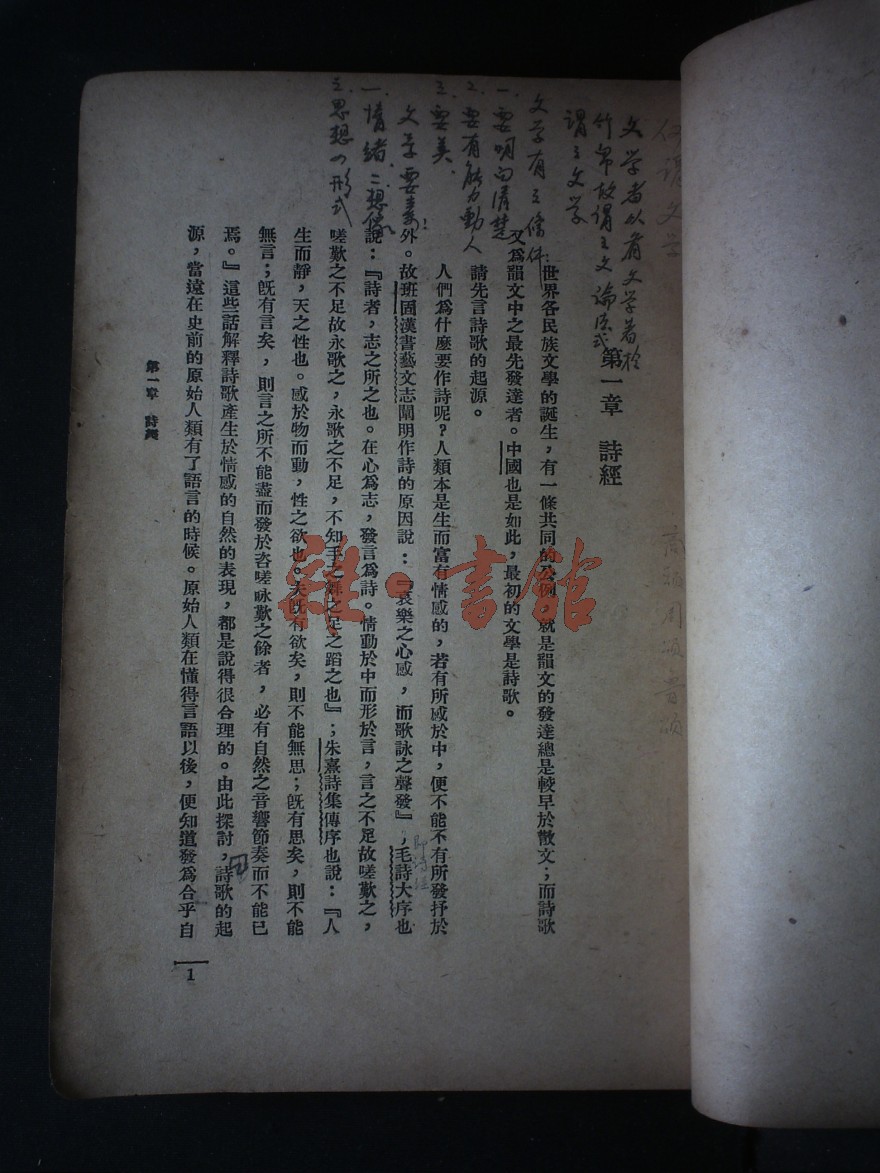 何謂文学
文学者以有文字著於
竹帛故謂之文論法式
謂之文学
文学有三條件:
一.要明白清楚
二.要有能力動人
三.要美.
文学要素!
一.情緒二想像
三.思想四形式
第一章 詩經
世界各民族文學的誕生，有一條共同的公例，就是韻文的發達總是較早於散文；而詩歌
又爲韻文中之最先發達者。中國也是如此，最初的文學是詩歌。
請先言詩歌的起源。
人們爲什麽要作詩呢？人類本是生而富有情感的，若有所感於中，便不能不有所發抒於
外。故班固漢書藝文志闡明作詩的原因說：『哀樂之心感，而歌詠之聲發』，毛詩大序也
說：『詩者，志之所之也。在心爲志，發言爲詩。情動於中而形於言，言之不足故嗟歎之，
嗟歎之不足故永歌之，永歌之不足，不知手之舞之足之蹈之也』；朱熹詩集傳序也說：『人
生而靜，天之性也。感於物而動，性之欲也。夫既有欲矣，則不能無思；既有思矣，則不能
無言；既有言矣，則言之所不能盡而發於咨嗟咏歎之餘者，必有自然之音響節奏而不能已
焉。』這些話解釋詩歌產生於情感的自然的表現，都是說得很合理的。由此探討，詩歌的起
源，當遠在史前的原始人類有了語言的時候。原始人類在懂得言語以後，便知道發爲合乎自
即詩經
商頌周頌魯頌
第一章 詩經
1
雜·書館